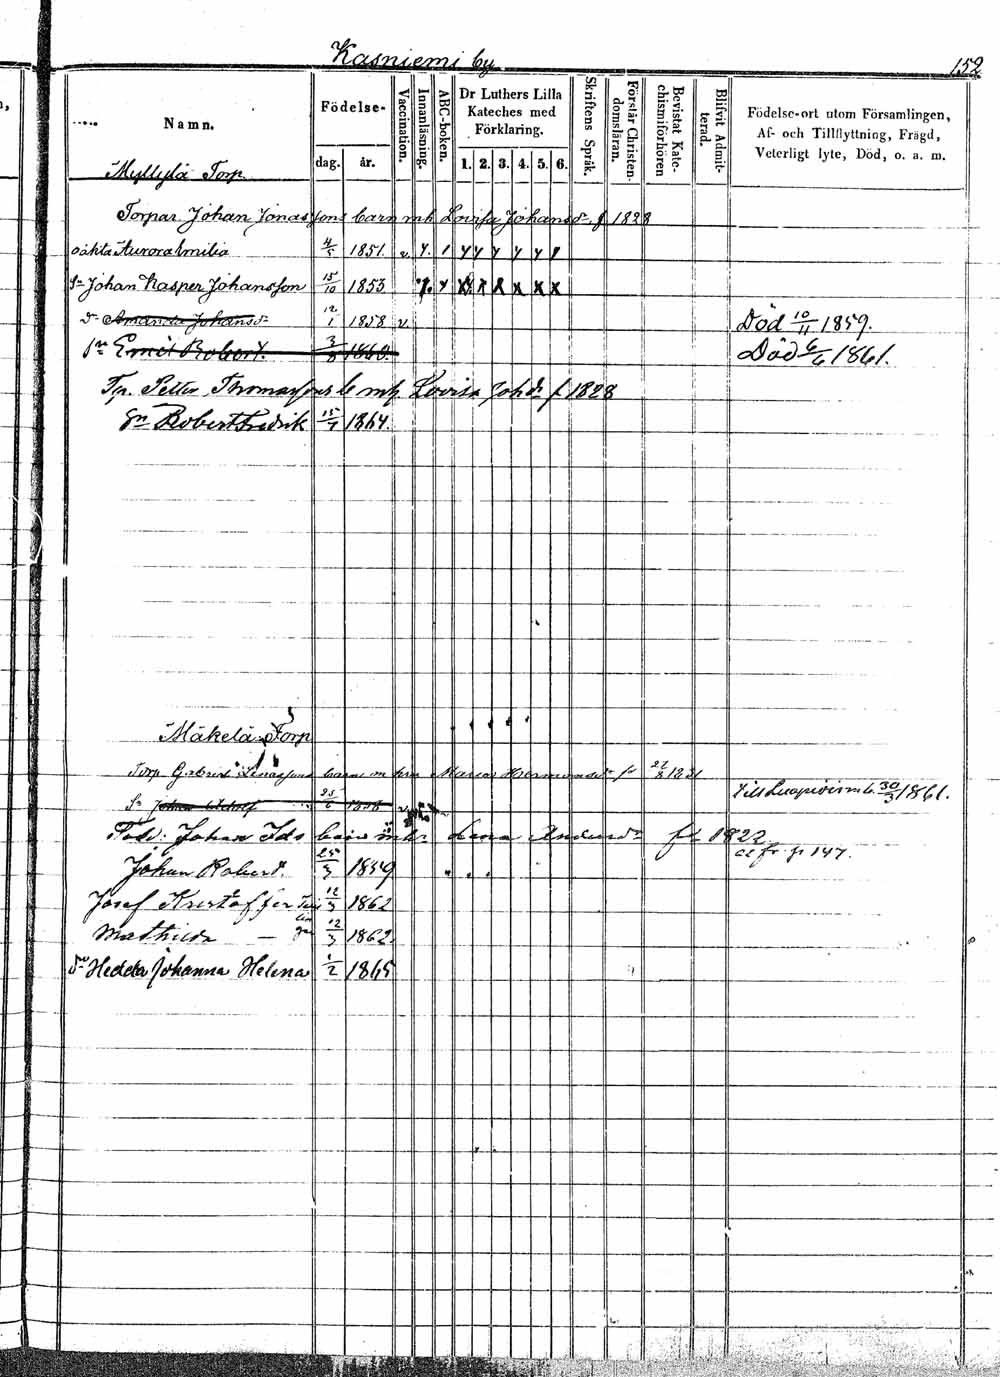 Kasniemi by
152
Namn.
Födelse-
dag.
år.
Vaccination.
Innanläsning.
ABC-boken.
Dr Luthers Lilla
Kateches med
Förklaring.
1. 2. 3. 4. 5. 6.
Skriftens Språk.
Förstår Christen-
domsläran.
Bevistat Kate-
chismiförhören
Blifvit Admit-
terad.
Födelse-ort utom Församlingen,
Af- och Tillflyttning, Frägd,
Veterligt lyte, Död, o. a. m.
Myllylä Torp.
Torpar. Johan Jonassons barn mh. Lovisa Johansdr f 1828
oäkta Aurora Emilia 4/5 1851. v
Sn Johan Kasper Johansson 15/10 1853
Dr Amanda Johansdr 12/1 1858 v Död 10/11 1859.
sn Emil Robert. 1860. Död 6/6 1861.
Tp. Petter Thomassons b mh. Lovisa Johdr f 1828
Sn Robert Fredrik 15/7 1864.
Mäkelä Torp
Torp. Gabriel barn m hu Maria Hermansdr 1831
Sn Johan 25/6 1858 v Till 30/3 1861.
Johan Ids barn Lena Andersdr fd 1822
fr. p 147.
Johan Robert. 25/3 1859
Josef Kristoffer 12/3 1862
Mathilda — 12/3 1862
Dr Hedda Johanna Helena 1/2 1865